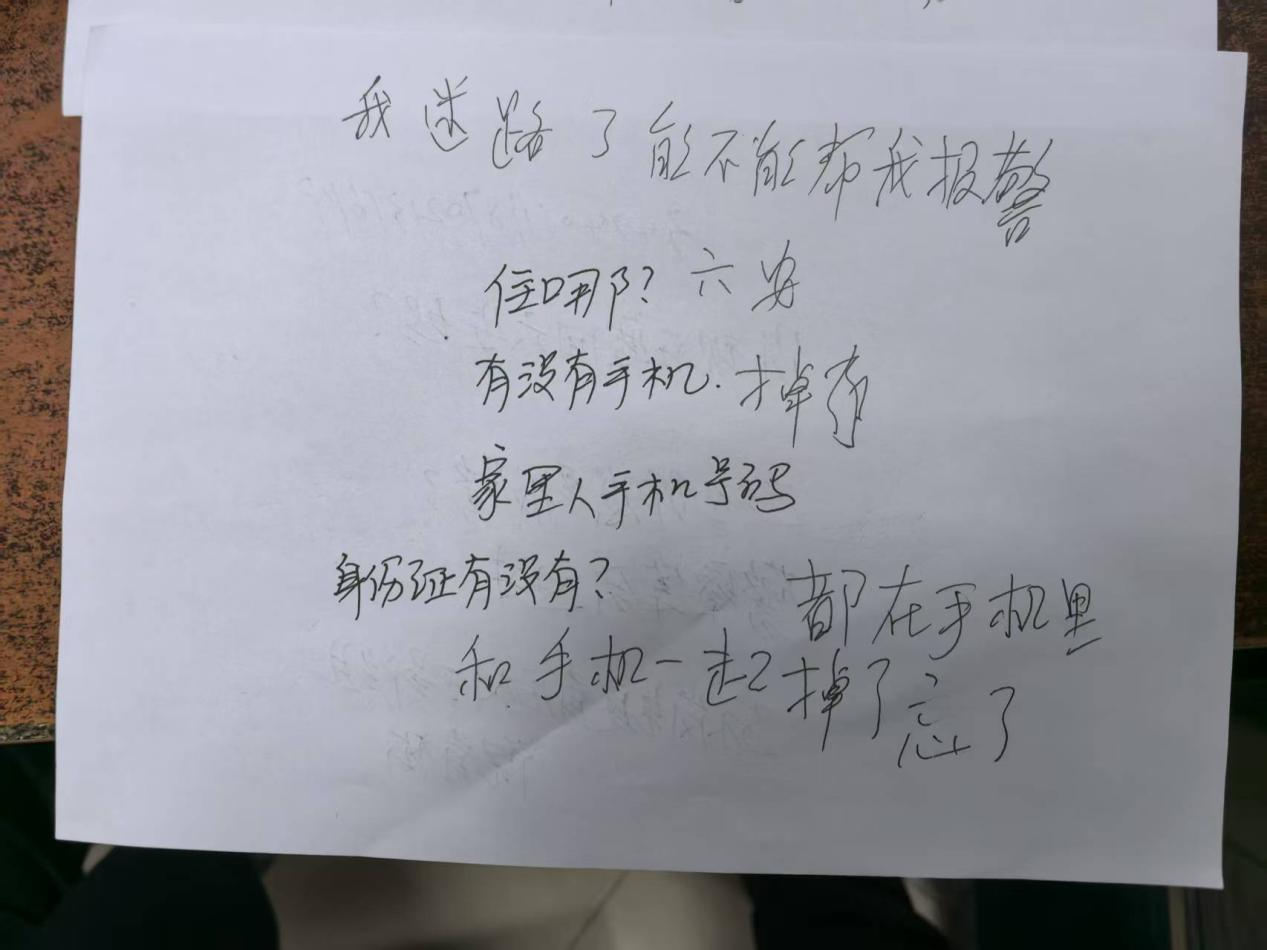 我迷路了能不能帮我报警
住哪? 六安
有没有手机. 掉
家里人手机号码
身份证有没有? 都在手机里
和手机一起掉了忘了